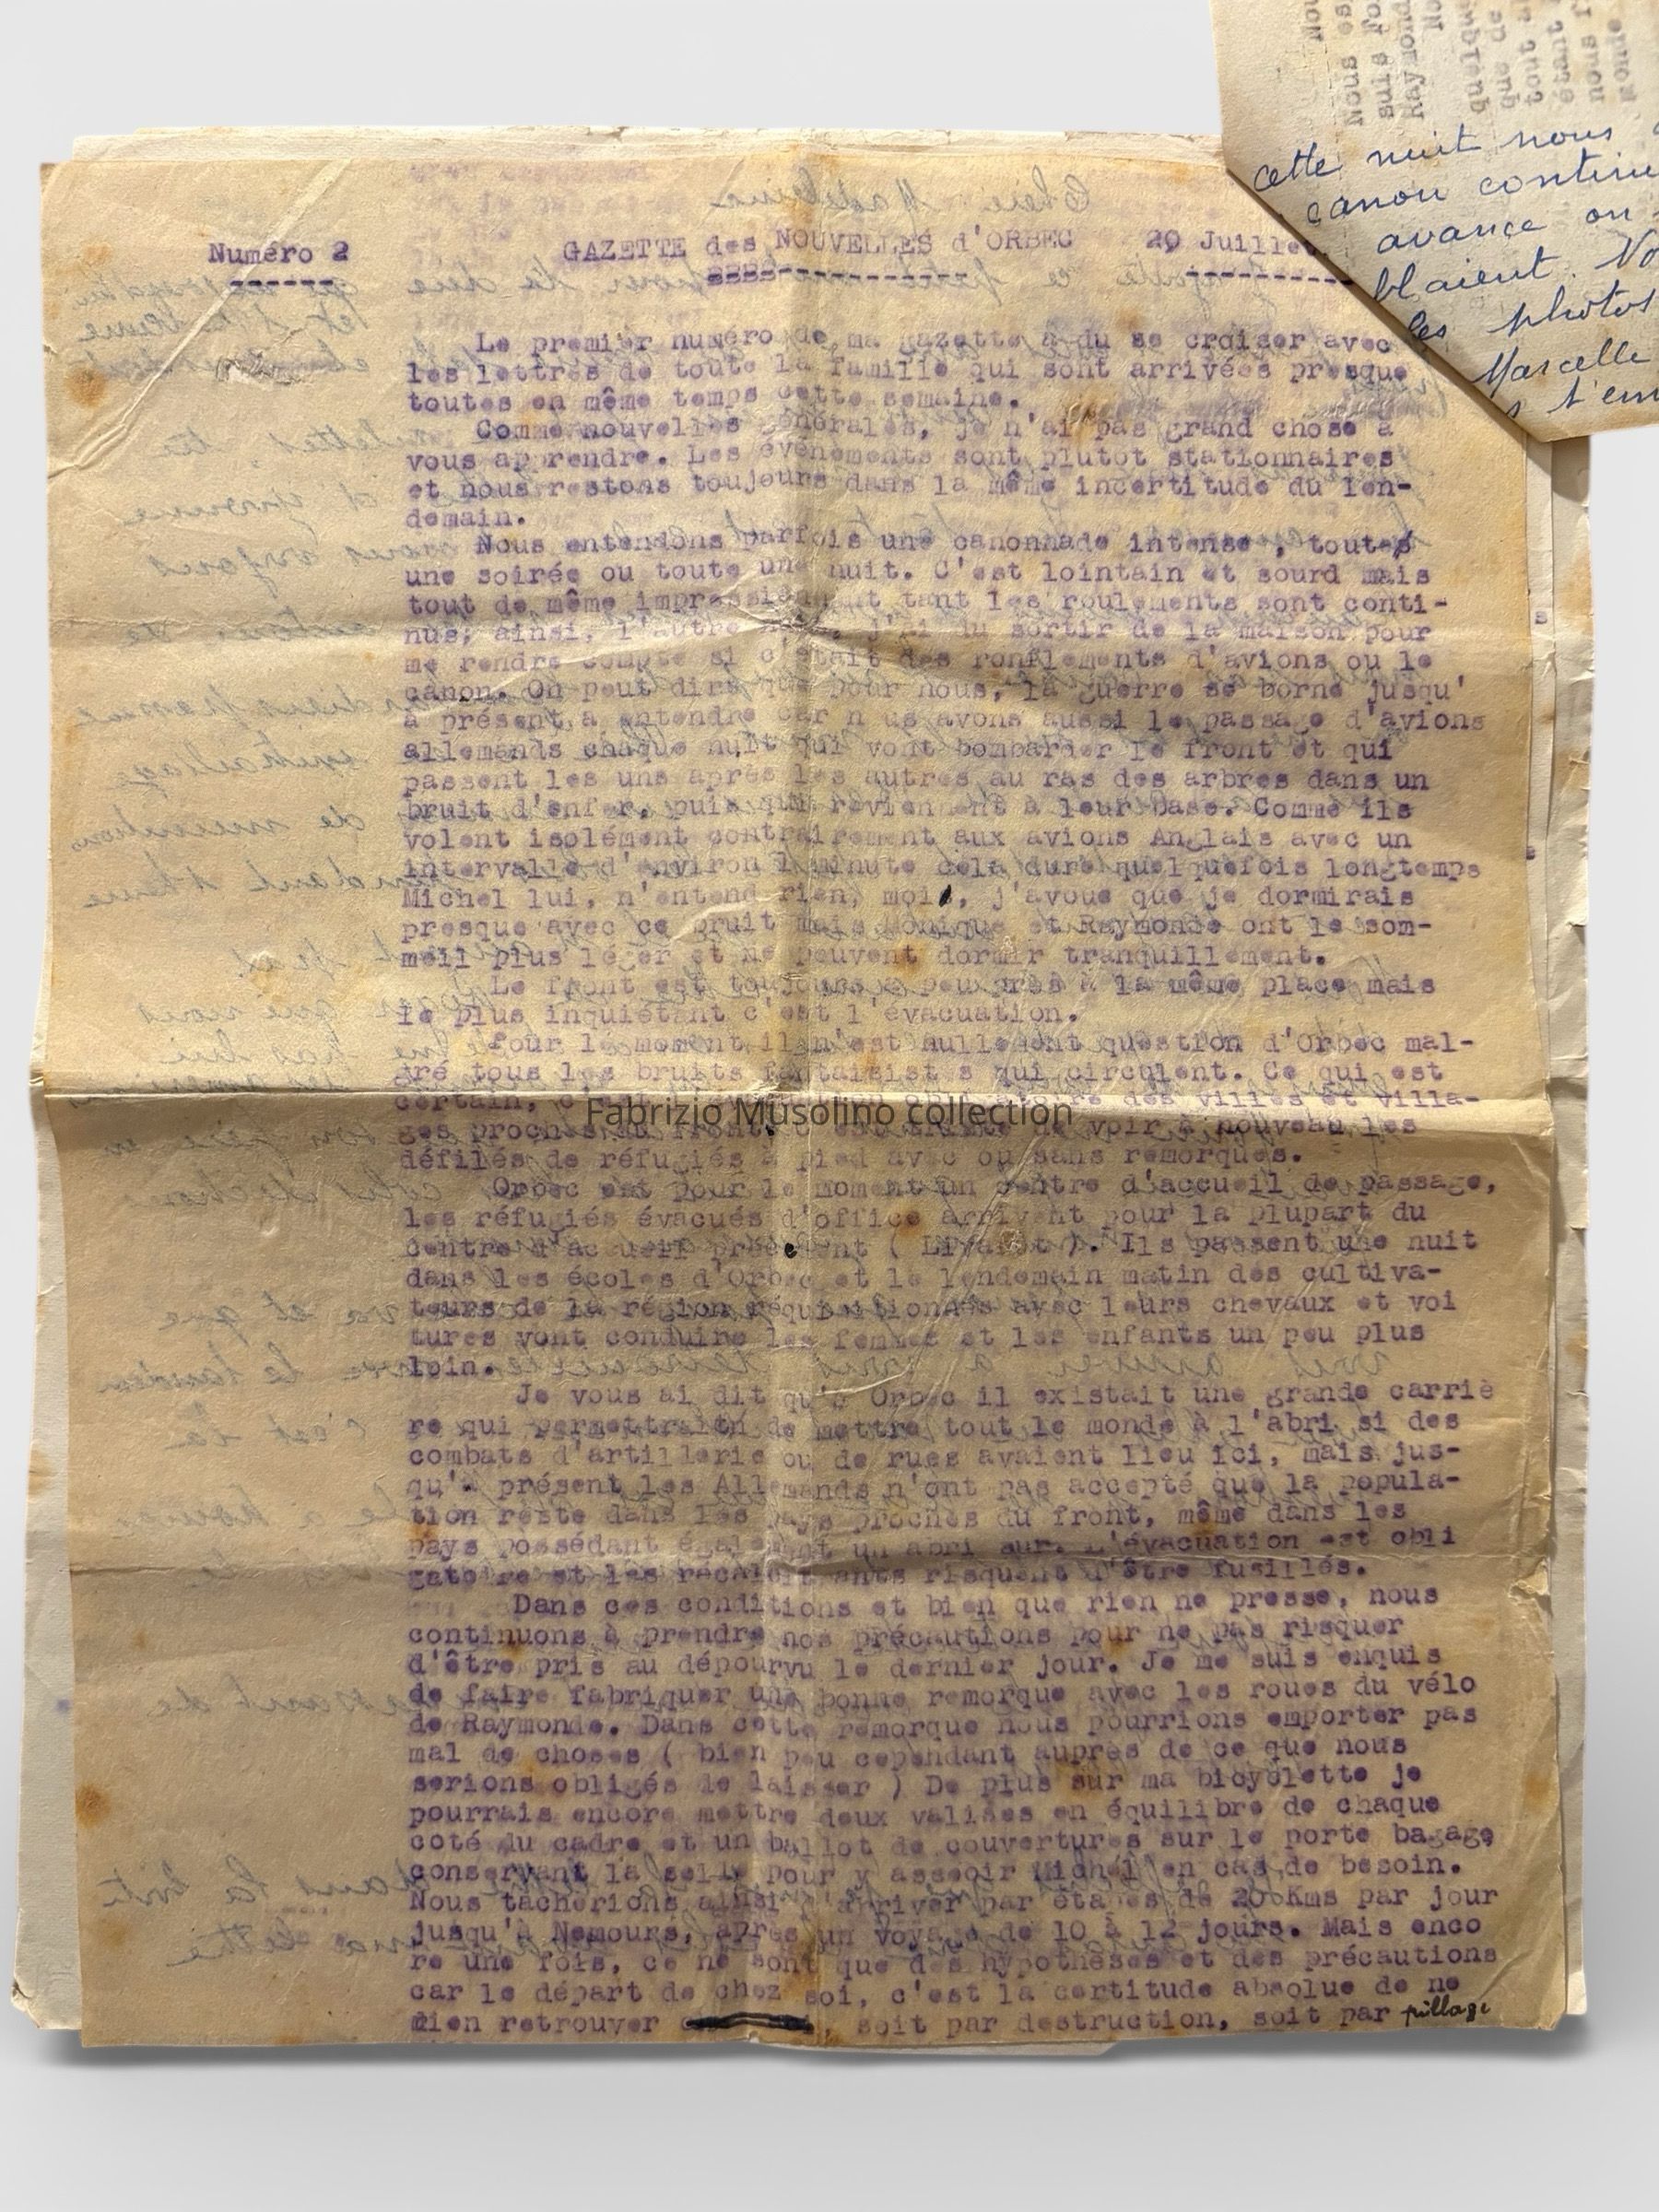 Numéro 2 GAZETTE des NOUVELLES d'ORBEC 29 Juillet
Le premier numéro de ma gazette a du se croiser avec
les lettres de toute la famille qui sont arrivées presque
toutes en même temps cette semaine.
Comme nouvelles générales, je n'ai pas grand chose à
vous apprendre. Les événements sont plutot stationnaires
et nous restons toujours dans la même incertitude du len-
demain.
Nous entendons parfois une canonnade intense , toute
une soirée ou toute une nuit. C'est lointain et sourd mais
tout de même impressionnant tant les roulements sont conti-
nus; ainsi, l'autre j'ai du sortir de la maison pour
me rendre compte si c'était des ronflements d'avions ou le
canon. On peut dire que pour nous, la guerre se borne jusqu'
à présent,a entendre car n us avons aussi le passage d'avions
allemands chaque nuit qui vont bombarder le front et qui
passent les uns après les autres au ras des arbres dans un
bruit d'enfer, puis qui reviennent à leur base. Comme ils
volent isolément contrairement aux avions Anglais avec un
intervalle d'environ 1 minute cela dure quelquefois longtemps
Michel lui, n'entend rien, moi, j'avoue que je dormirais
presque avec ce bruit mais Monique et Raymonde ont le som-
meil plus léger et ne peuvent dormir tranquillement.
Le front est toujours à peu près à la même place mais
le plus inquiétant c'est l'évacuation.
Pour le moment il n'est nullement question d'Orbec mal-
gré tous les bruits fantaisist s qui circulent. Ce qui est
certain, c'est des villes et villa-
ges proches du front. de voir à nouveau les
défilés de réfugiés à pied avec ou sans remorques.
Orbec est pour le moment un centre d'accueil de passage,
les réfugiés évacués d'office arrivent pour la plupart du
centre d'accueil précédent ( Livarot ). Ils passent une nuit
dans les écoles d'Orbec et le lendemain matin des cultiva-
teurs de la région réquisitionnés avec leurs chevaux et voi
tures vont conduire les femmes et les enfants un peu plus
loin.
Je vous ai dit qu'à Orbec il existait une grande carriè
re qui permettraitn de mettre tout le monde à l'abri si des
combats d'artillerie ou de rues avaient lieu ici, mais jus-
qu'à présent les Allemands n'ont pas accepté que la popula-
tion reste dans les pays proches du front, même dans les
pays possédant également un abri sur. L'évacuation est obli
gatoire et les récalcitrants risquent d'être fusillés.
Dans ces conditions et bien que rien ne presse, nous
continuons à prendre nos précautions pour ne pas risquer
d'être pris au dépourvu le dernier jour. Je me suis enquis
de faire fabriquer une bonne remorque avec les roues du vélo
de Raymonde. Dans cette remorque nous pourrions emporter pas
mal de choses ( bien peu cependant auprès de ce que nous
serions obligés de laisser ) De plus sur ma bicyclette je
pourrais encore mettre deux valises en équilibre de chaque
coté du cadre et un ballot de couvertures sur le porte bagage
conservant la selle pour y asseoir Michel en cas de besoin.
Nous tacherions ainsi d'arriver par étapes de 20 Kms par jour
jusqu'à Nemours, après un voyage de 10 à 12 jours. Mais enco
re une fois, ce ne sont que des hypothèses et des précautions
car le départ de chez soi, c'est la certitude absolue de ne
rien retrouver , soit par destruction, soit par pillage
cette nuit nous
canon continu
avance on
blaient. No
les photos
Marcelle
t'em
Nous es
suis
Raymond
quelqu
que de
tout
étant
nous
monde
Fabrizio Musolino collection